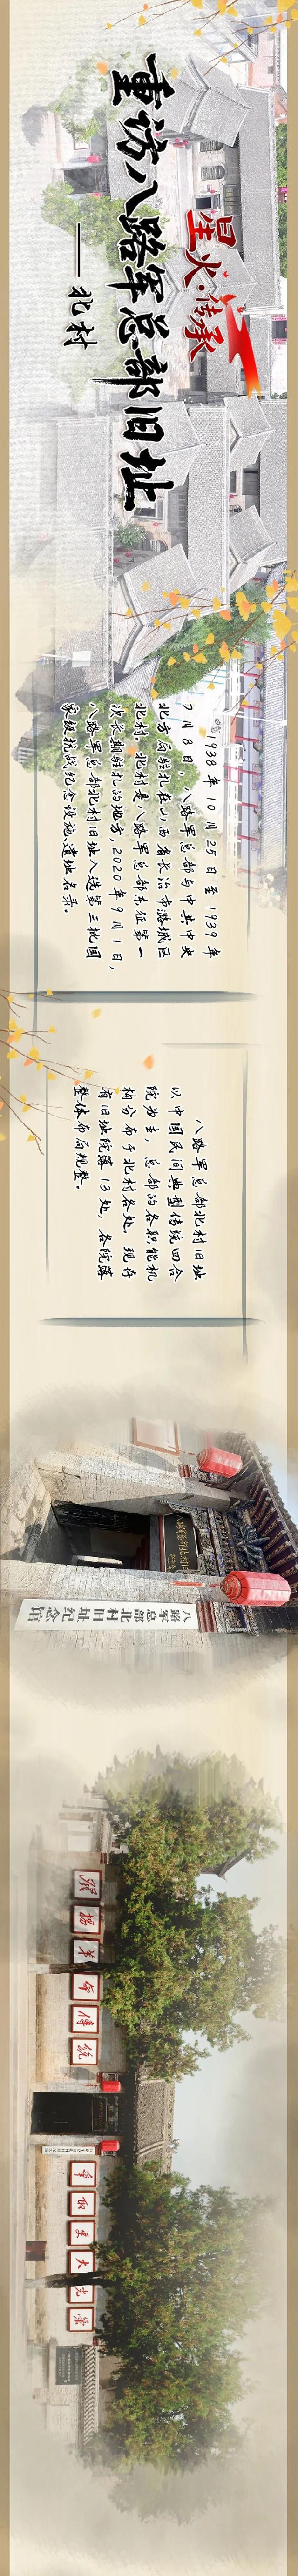 星火·传承
重访八路军总部旧址
——北村
1938年10月25日至1939年
7月8日，八路军总部与中共中央
北方局驻扎在山西省长治市潞城区
北村。北村是八路军总部东征第一
次长期驻扎的地方，2020年9月1日，
八路军总部北村旧址入选第三批国
家级抗战纪念设施、遗址名录。
八路军总部北村旧址
以中国民间典型传统四合
院为主，总部的各职能机
构分布于北村各处。现存
有旧址院落13处，各院落
整体布局规整。
八路军总部北村旧址纪念馆
发扬革命传统
争取更大光荣